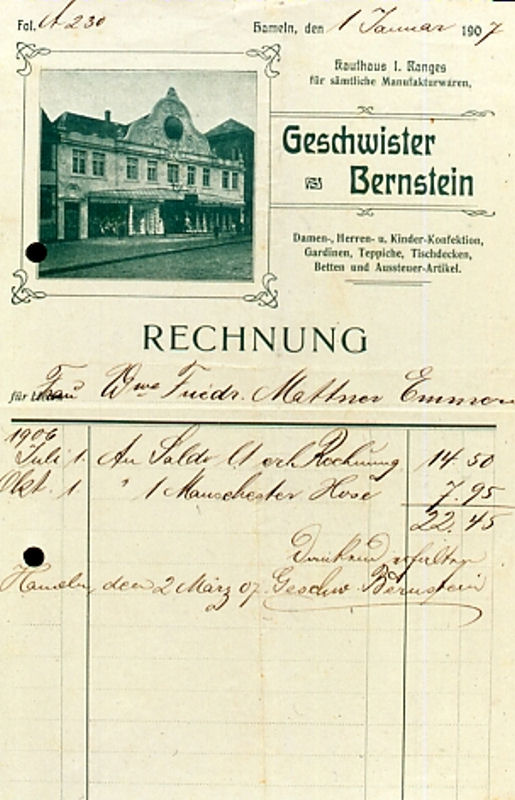 Fol. A 230
Hameln, den 1 Januar 1907
Kaufhaus I. Ranges
für sämtliche Manufakturwaren,
Geschwister
Bernstein
Damen-, Herren- u. Kinder-Konfektion,
Gardinen, Teppiche, Tischdecken,
Betten und Aussteuer-Artikel.
RECHNUNG
für Frau Wwe Friedr. Mattner Emmern
1906
Juli 1. An Saldo lt erh Rechnung 14.50
Okt. 1 " 1 Manschester Hose 7.95
22.45
Dankend erhalten
Hameln, den 2 März 07. Geschw. Bernstein